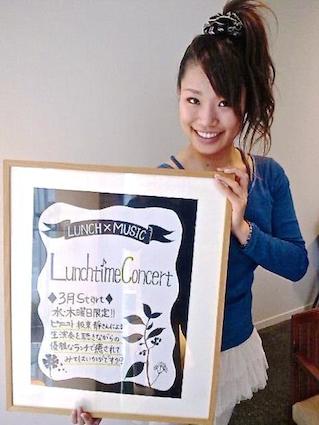 LUNCH×MUSIC
Lunchtime Concert
◆3月Start◆
水・木曜日限定!!
ピアニスト 板東 静さんによる
生演奏を聴きながらの
優雅なランチで癒されて
みてはいかがですか?